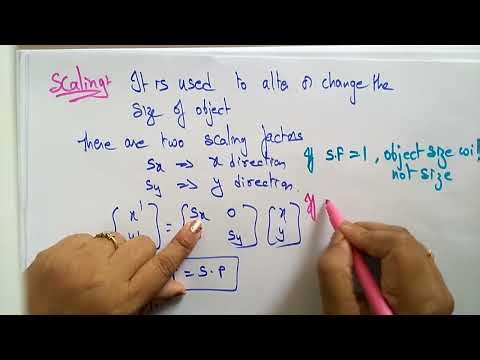 Scaling It is used to alter or change the
size of object
There are two scaling factors
Sx ⇒ x direction
Sy ⇒ y direction.
If S.F = 1, object size wil
not size
[x'] = [Sx 0] [x] If
Sy] [y]
= S.P